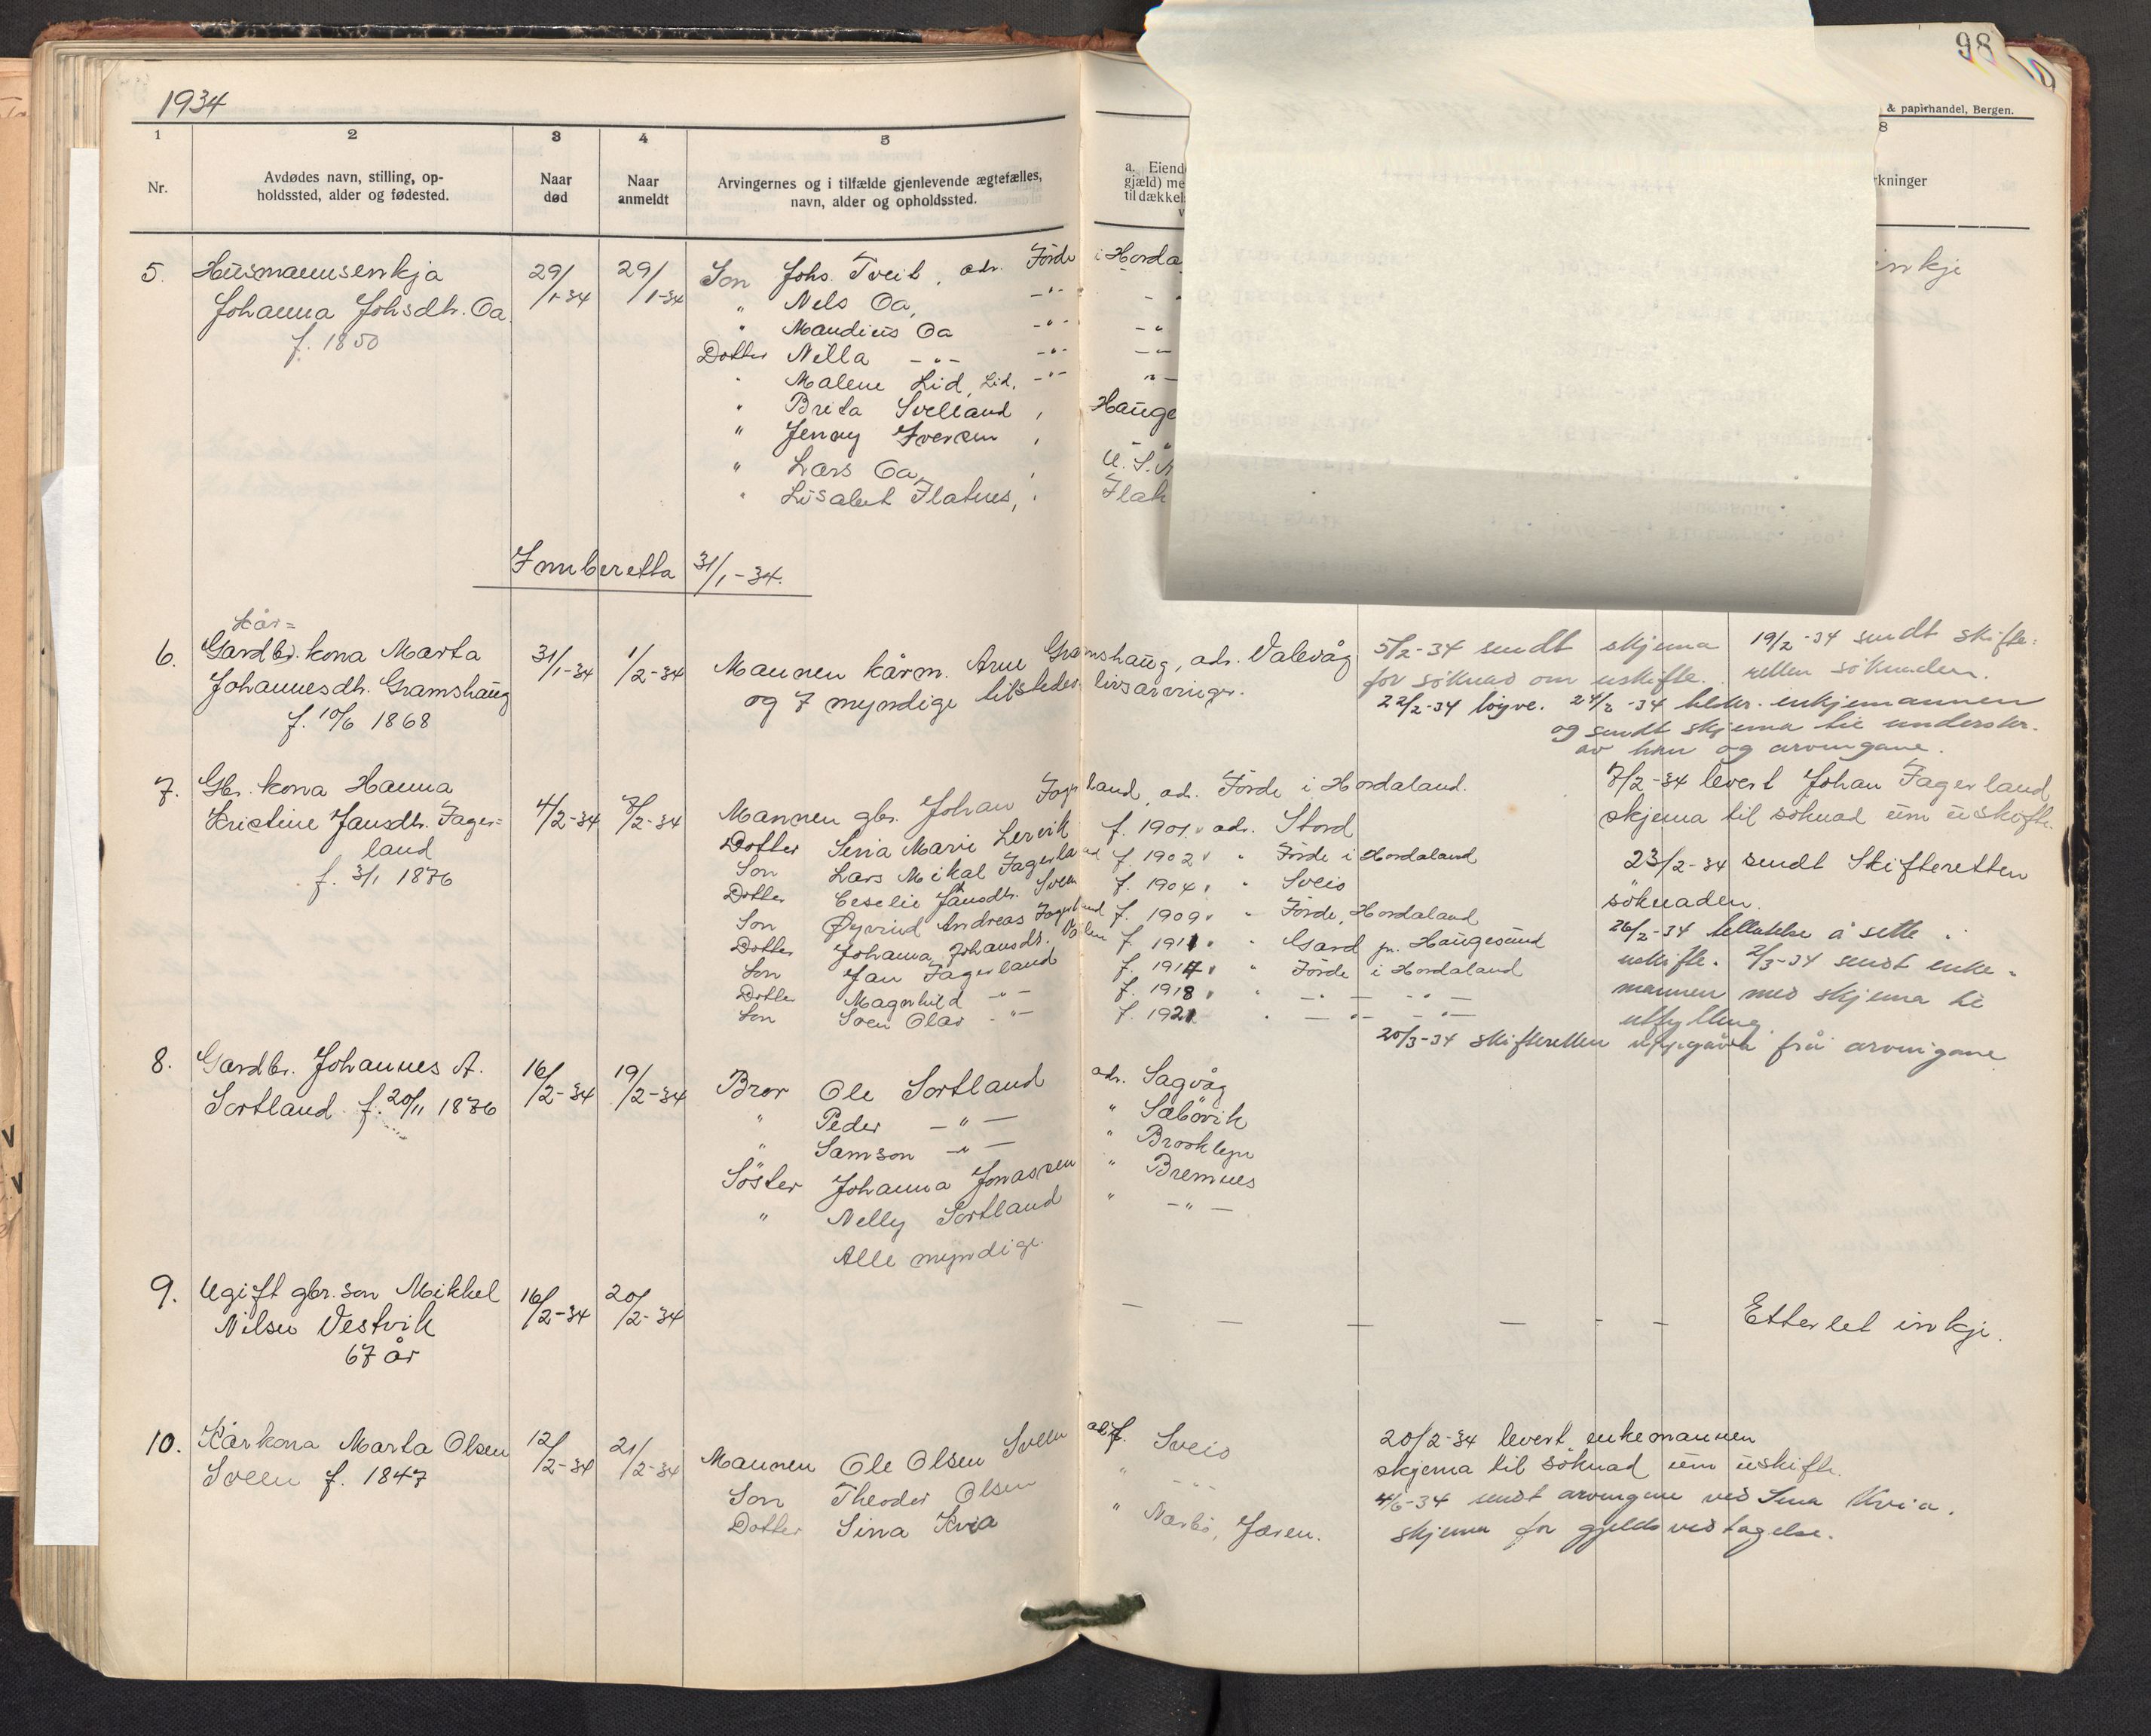 98
1934
& papirhandel, Bergen.
1 2 3 4 5 8
Nr.
Avdødes navn, stilling, op-
holdssted, alder og fødested.
Naar
død
Naar
anmeldt
Arvingernes og i tilfælde gjenlevende ægtefælles,
navn, alder og opholdssted.
a. Eiend
gjæld) me
til dækkel
v
rkninger
5. Husmannsenkja 29/1-34 29/1-34 Son Johs. Tveit, adr. Förde i Horda inkje
Johanna Johsdtr. Oa " Nels Oa, -"- - "
f. 1850 " Mandius Oa -"- - "
Dotter Nilla -"- -"- -"-
" Malene Lid, Lid, -"- "-
" Brita Svelland, Hauge
" Jenny Iversen, "
" Lars Oa, U.S.A
" Lisabet Flatnes, Flat
Innberetta 31/1-34.
Kår=
6. Gardbr. kona Marta 31/1-34 1/2-34 Mannen kårm. Arne Gramshaug, adr. Valevåg 5/2-34 sendt skjema 19/2-34 sendt skifte-
Johannesdtr. Gramshaug og 7 myndige tilstedev. livsarvinger. for söknad om uskifte. retten söknaden.
f. 10/6 1868 22/2-34 löyve. 24/2-34 enkjemannen
og sendt skjema til underskr.
av han og arvingane.
7. Gbr. kona Hanna 4/2-34 7/2-34 Mannen gbr. Johan Fagerland, adr. Förde i Hordaland. 7/2-34 levert Johan Fagerland
Kristine Jansdtr. Fager= Dotter Sina Marie Lervik f. 1901, adr. Stord skjema til söknad um uskifte.
land Son Lars Mikal Fagerland f. 1902, " Förde i Hordaland 23/2-34 sendt Skifteretten
f. 3/1 1876 Dotter Ceselie Jansdtr. Sveen f. 1904, " Sveio söknaden.
Son Øyvind Andreas Fagerland f. 1909, " Förde, Hordaland 26/2-34 tillatelse å sitte i
Dotter Johanna Johansdtr. f. 1911, " Gard pr. Haugesund uskifte. 2/3-34 sendt enke-
Son Jan Fagerland f. 1914, " Förde i Hordaland mannen med skjema til
Dotter Magnhild -"- f. 1918, " -"- -"- utfylling.
Son Sven Olav -"- f. 1921 " -"- -"-
20/3-34 skifteretten uppgåva frå arvingane
8. Gardbr. Johannes A. 16/2-34 19/2-34 Bror Ole Sortland adr. Sagvåg
Sortland f. 20/11 1876 " Peder -"- " Sæbövik
" Samson -"- " Brooklyn
Söster Johanna Jonassen " Bremnes
" Nelly Sortland " -"-
Alle myndige.
9. Ugift gbr. son Mikkel 16/2-34 20/2-34 - - - - - - Etterlet inkje.
Nilsen Vestvik
67 år
10. Kårkona Marta Olsen 12/2-34 21/2-34 Mannen Ole Olsen Sveen adr. Sveio 20/2-34 levert enkemannen
Sveen f. 1847 Son Theodor Olsen " -"- skjema til söknad um uskifte.
Dotter Sina Kvia " Nærbö, Jæren. 4/6-34 sendt arvingane ved Sina Kvia.
skjema for gjeldsvedtagelse.